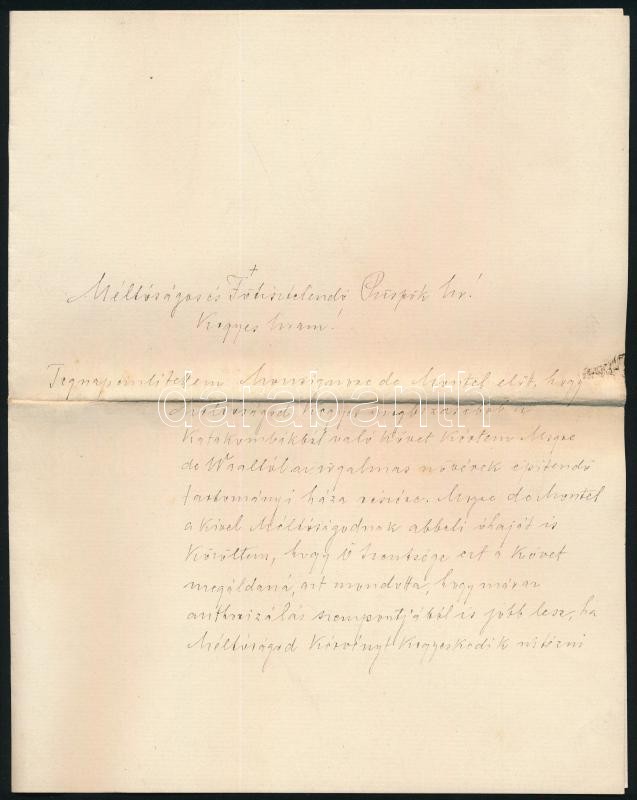 +
Méltóságos és Főtisztelendő Püspök Úr!
Kegyes Uram!
Tegnap említettem Monsignore de Montel előtt, hogy
Méltóságod kegyes megbízásából a
Katakombákból való követ kértem Msgre
de Waaltól az irgalmas nővérek építendő
tartományi háza részére. Msgre de Montel
a kivel Méltóságodnak abbeli óhaját is
közöltem, hogy Ő Szentsége ezt a követ
megáldaná, azt mondotta, hogy már az
authorizálás szempontjából is jobb lesz, ha
Méltóságod kérvényt kegyeskedik intézni
darabanth